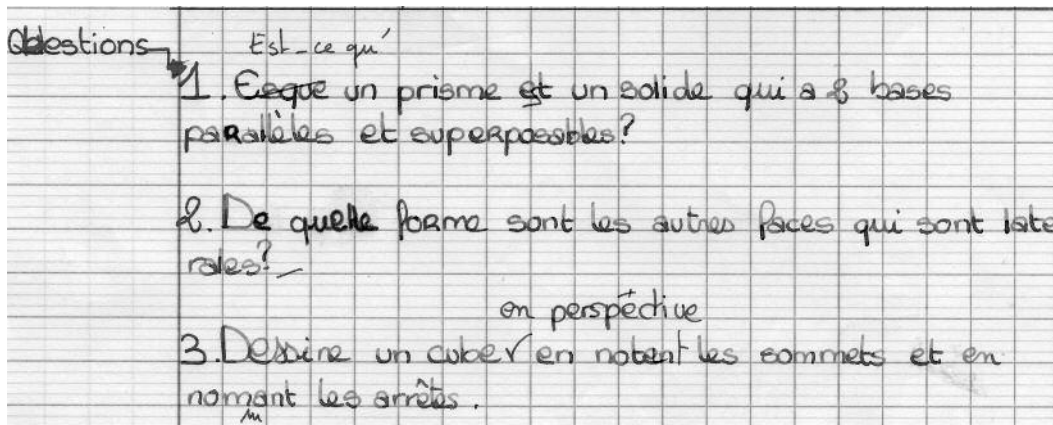 Questions
Est-ce qu'
1. Eeque un prisme est un solide qui a 2 bases
parallèles et superposables?
2. De quelle forme sont les autres faces qui sont laté
rales?
en perspective
3. Dessine un cube en notent les sommets et en
nomant les arrêtes.
m